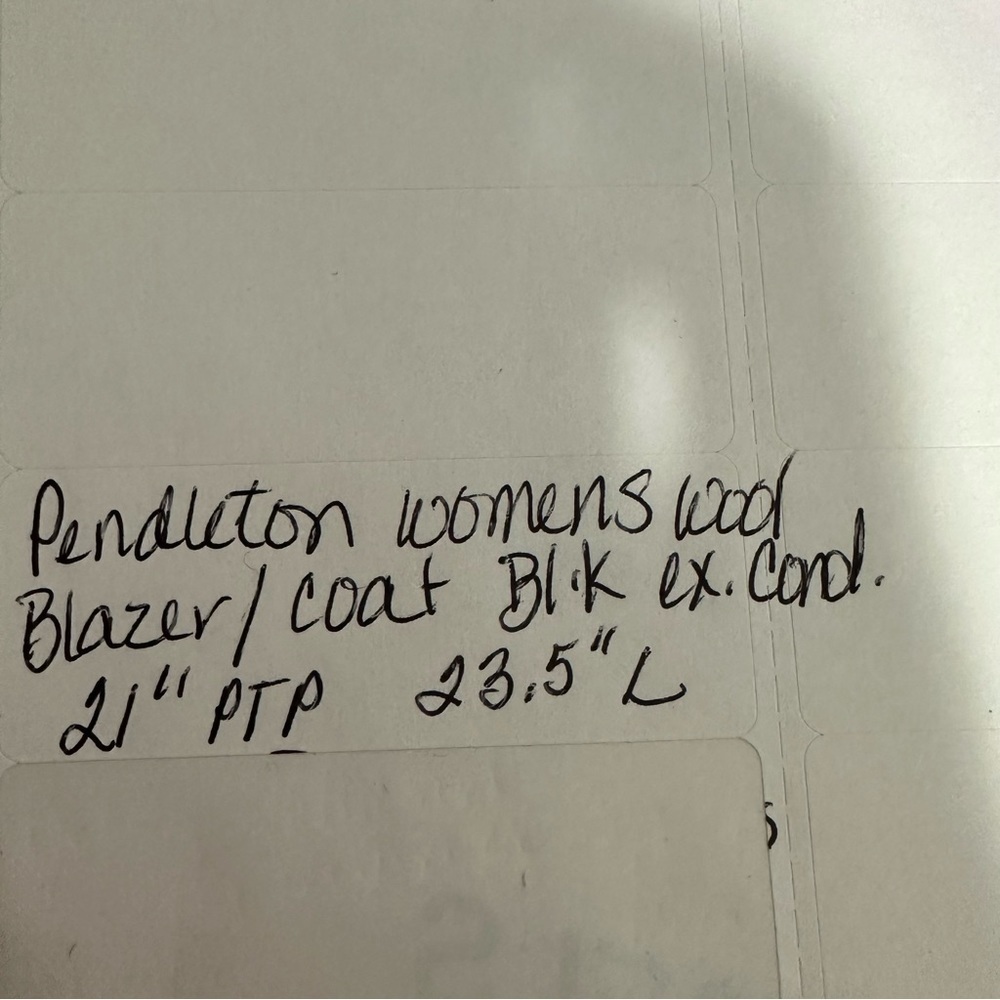 Pendleton womens wool
Blazer/coat Bl.k ex. Cond.
21" PTP 23.5" L